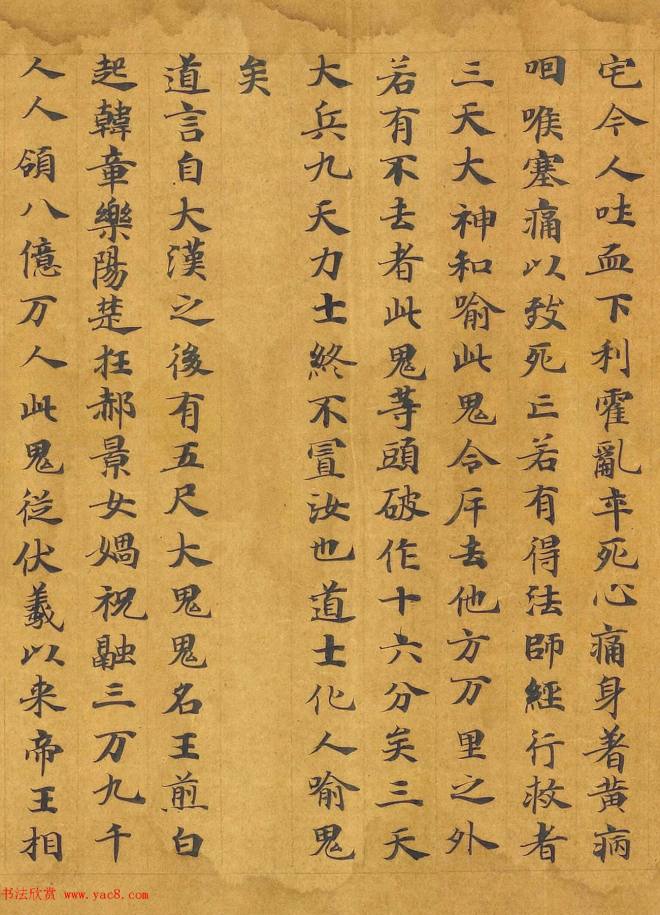 宅令人吐血下利霍亂卒死心痛身著黃病
咽喉塞痛以致死亡若有得法師經行救者
三天大神和喻此鬼令斥去他方万里之外
若有不去者此鬼等頭破作十六分矣三天
大兵九天力士終不置汝也道士化人喻鬼
矣
道言自大漢之後有五尺大鬼鬼名王煎白
起韓章樂陽楚狂郝景女媧祝融三万九千
人人領八億万人此鬼從伏羲以来帝王相
书法欣赏 www.yac8.com